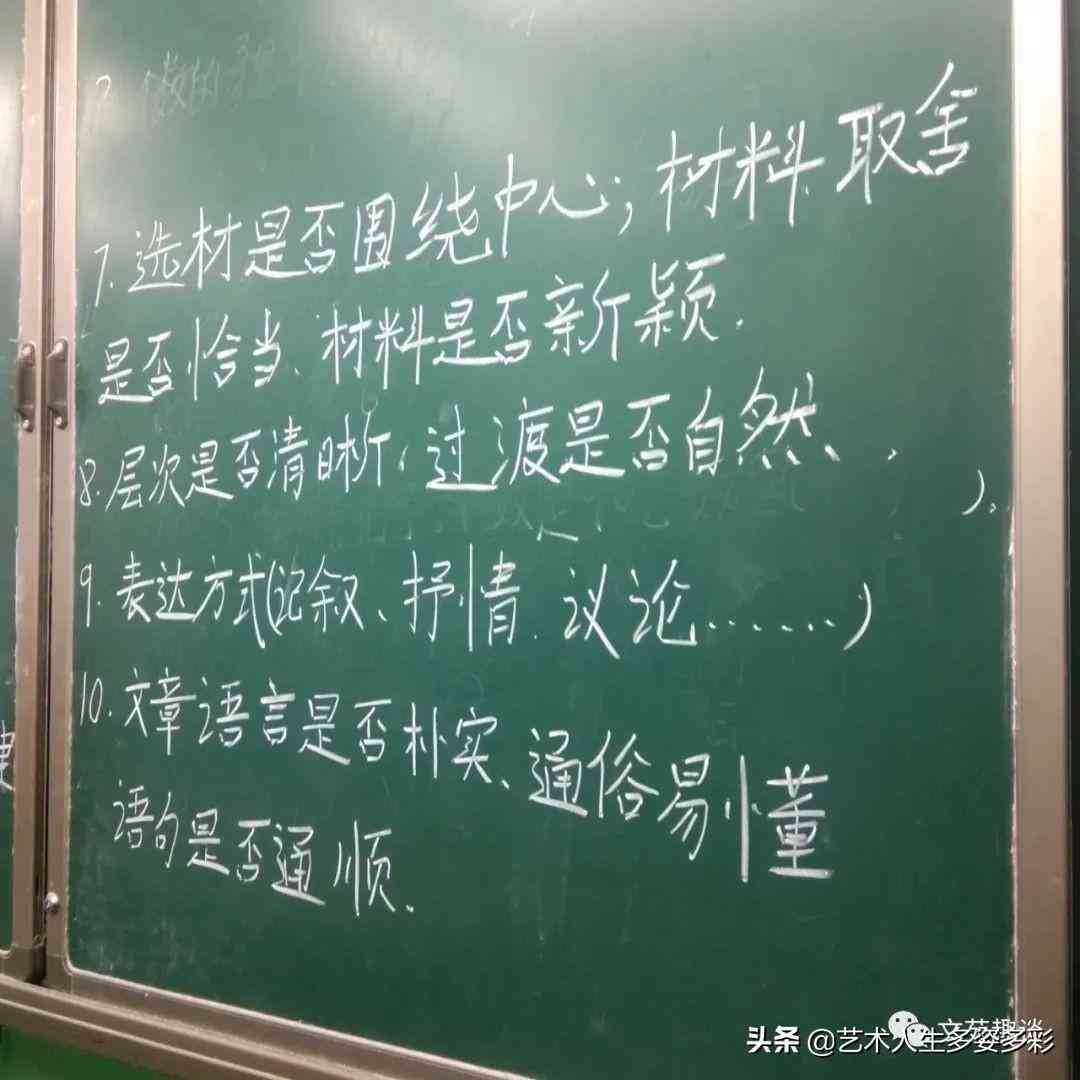 7.选材是否围绕中心；材料取舍
是否恰当、材料是否新颖.
8.层次是否清晰，过渡是否自然、，
）。
9.表达方式(记叙、抒情、议论……)
10.文章语言是否朴实、通俗易懂
语句是否通顺.
头条 @艺术人生多姿多彩
文苑趣谈